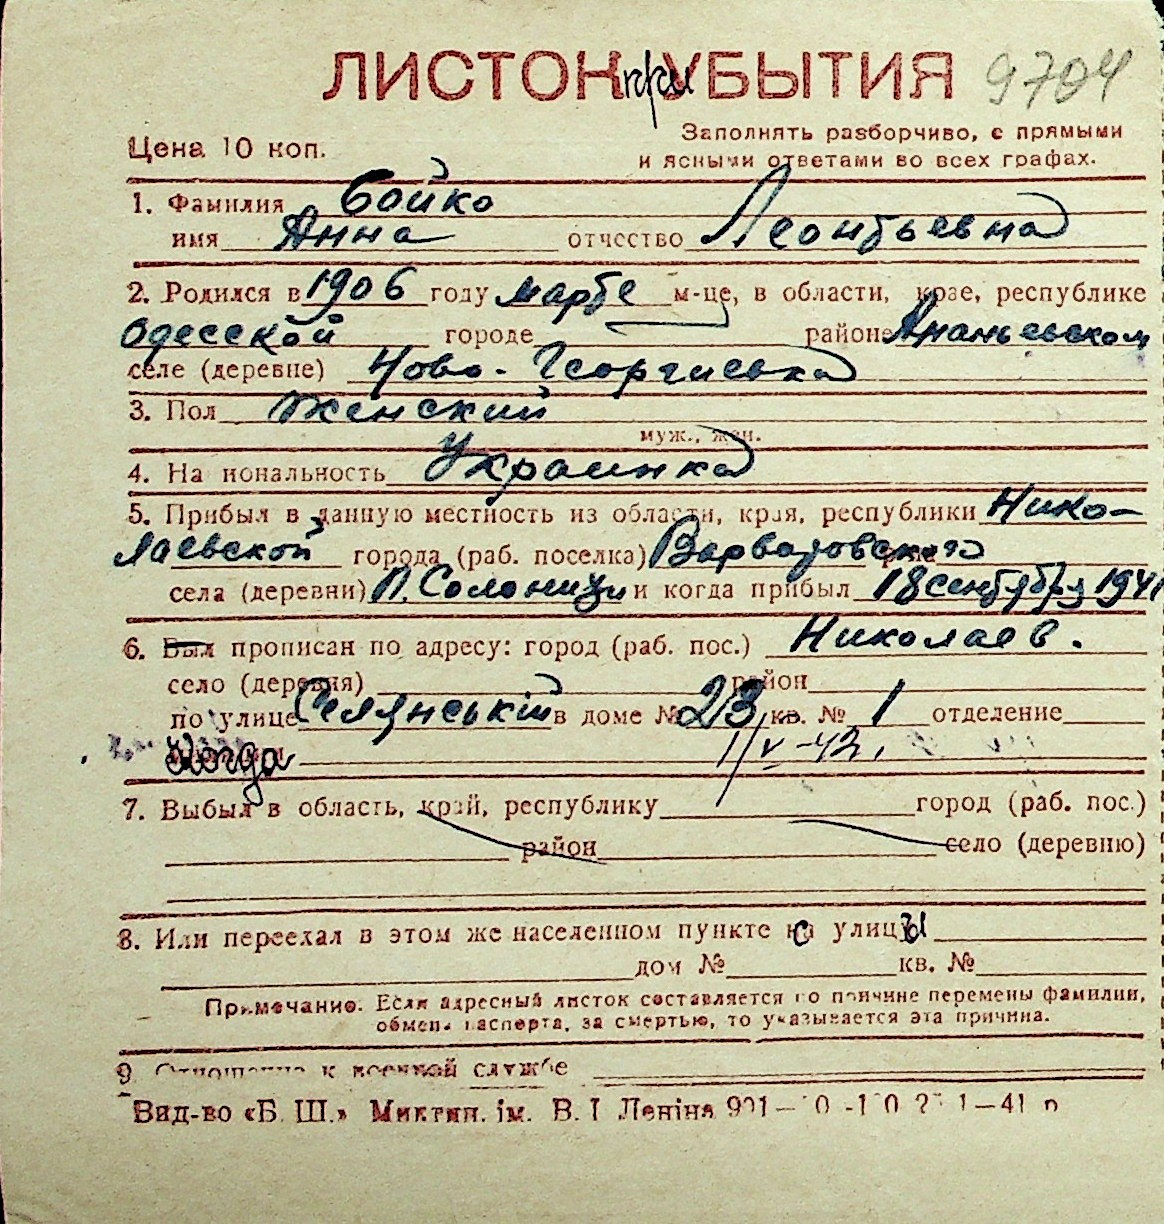 ЛИСТОК при УБЫТИЯ 9704
Цена 10 коп.
Заполнять разборчиво, с прямыми
и ясными ответами во всех графах.
1. Фамилия Бойко
имя Анна отчество Леонтьевна
2. Родился в 1906 году марте м-це, в области, крае, республике
Одесской городе районе Ананьевском
селе (деревне) Ново-Георгиевка
3. Пол Женский
муж., жен.
4. Национальность Украинка
5. Прибыл в данную местность из области, края, республики Нико-
лаевской города (раб. поселка) Варваровского
села (деревни) П. Солоници и когда прибыл 18 сентября 1941
6. Был прописан по адресу: город (раб. пос.) Николаев.
село (деревня) район
по улице Селянській в доме № 23 кв. № 1 отделение
Когда 1/V-42.
7. Выбыл в область, край, республику город (раб. пос.)
район село (деревню)
8. Или переехал в этом же населенном пункте с улицы
дом № кв. №
Примечание. Если адресный листок составляется по причине перемены фамилии,
обмена паспорта, за смертью, то указывается эта причина.
9 Отношение к военной службе
Вид-во «Б. Ш.» Микти. ім. В. І Леніна